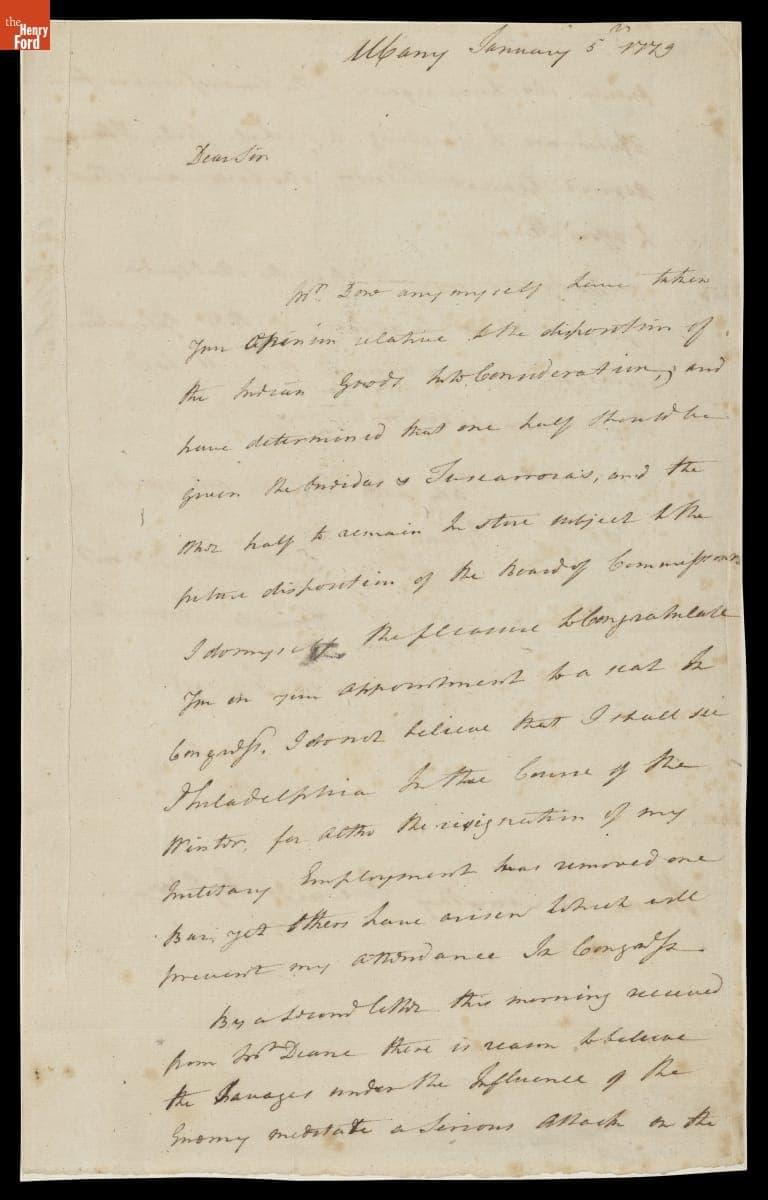 the
Henry
Ford
Albany January 5th 1779
Dear Sir
Mr. Dow any myself have taken
Your Opinion relative to the disposition of
the Indian Goods Into Consideration, and
have determined that one half should be
given the Onidas & Tuscarroras, and the
other half to remain In store subject to the
future disposition of the Board of Commissioners
I do myself the pleasure to Congratulate
You on your appointment to a seat In
Congress. I do not believe that I shall see
Philadelphia In the Course of the
Winter, for altho the resignation of my
military Employment has removed one
Bar, yet others have arisen which will
prevent my attendance In Congress
By a second letter this morning received
from Mr. Deane there is reason to believe
the Savages under the Influence of the
Enemy meditate a serious Attack on the